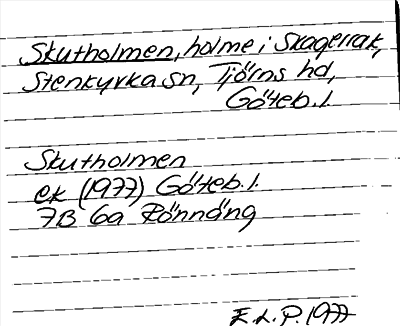 Skutholmen, holme i Skagerrak,
Stenkyrka sn, Tjörns hd,
Göteb. l.
Skutholmen
ek (1977) Göteb. l.
7B 6a Rönnäng
E.L.P. 1977